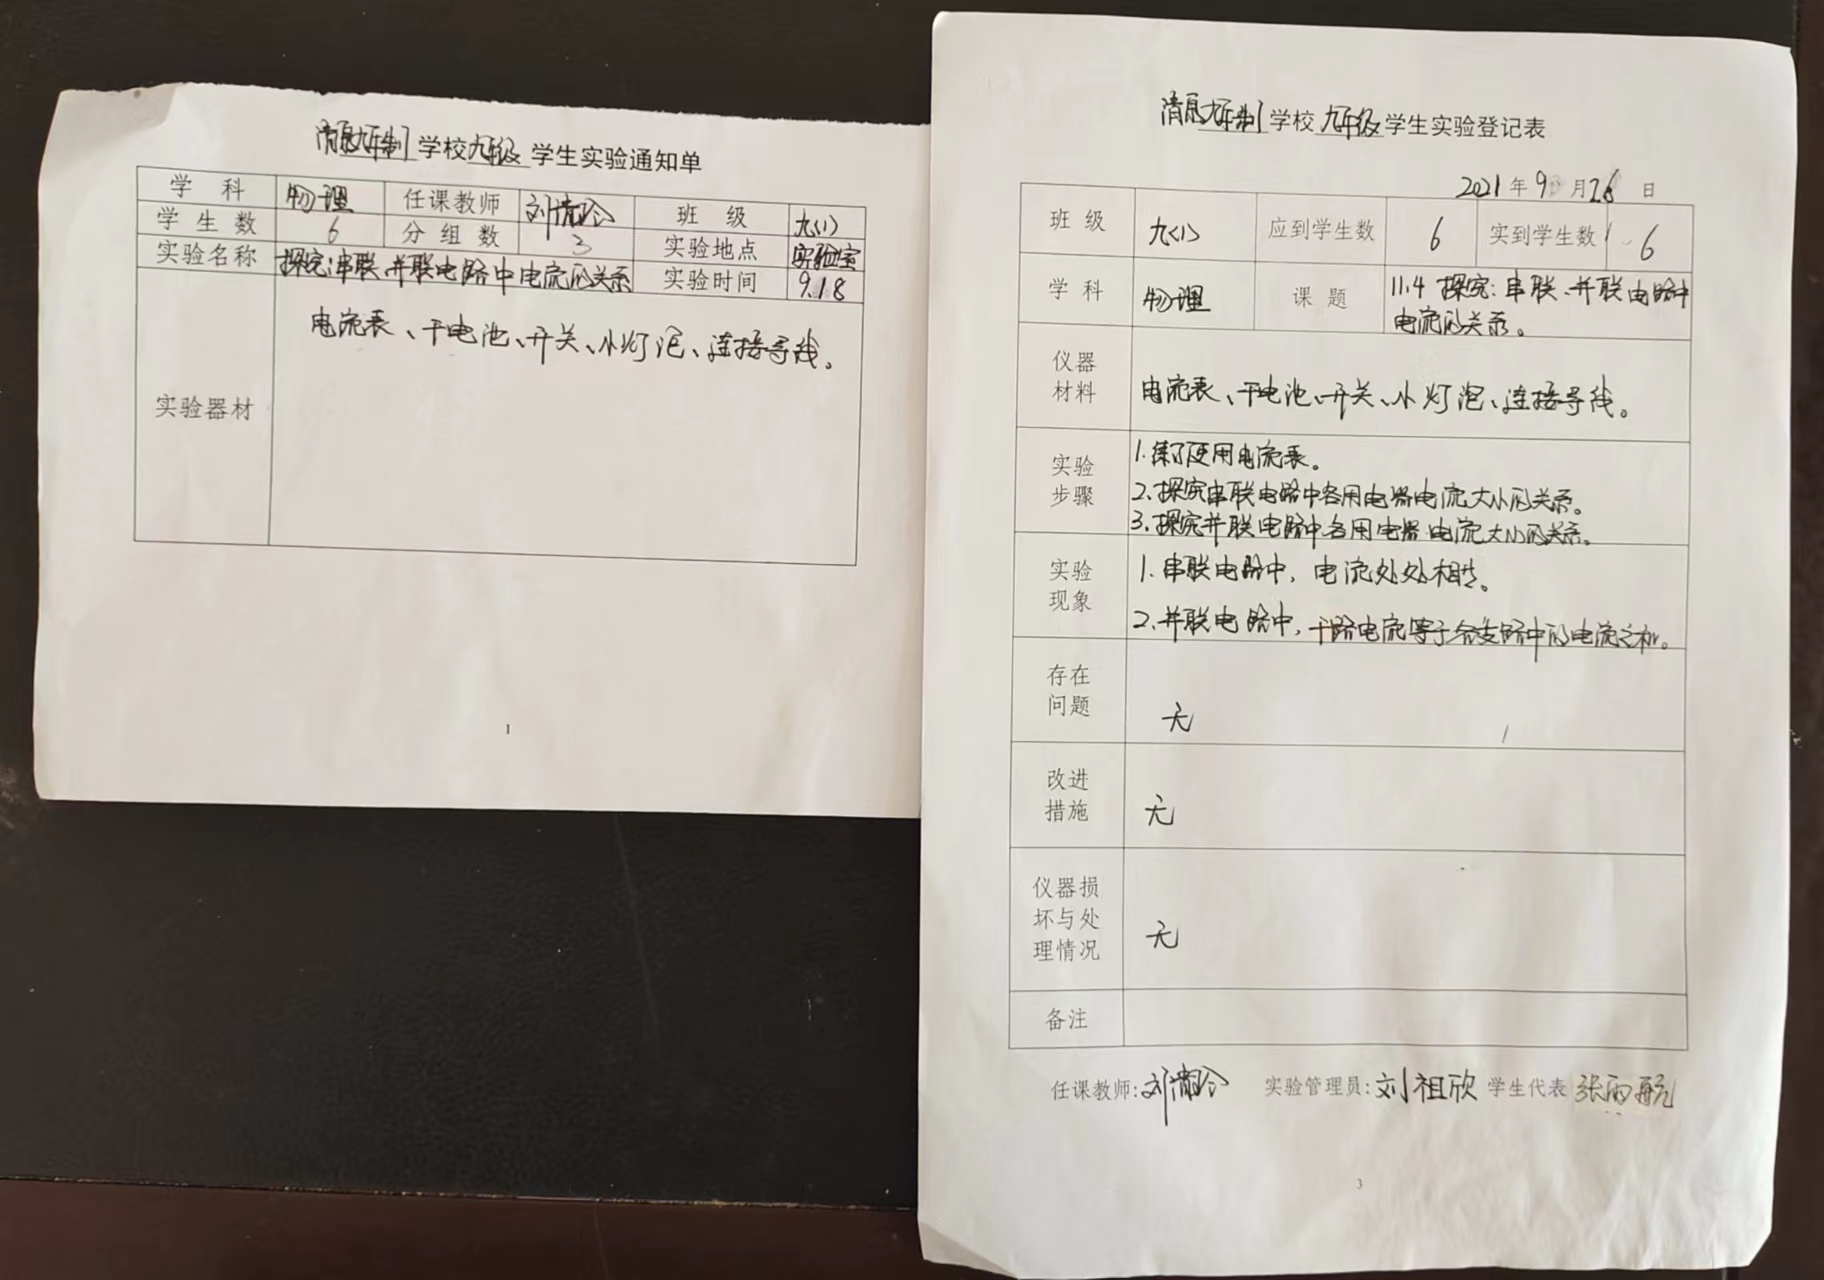 清原九年制学校九年级 学生实验通知单
学 科 物理 任课教师 刘 班 级 九(1)
学 生 数 6 分 组 数 3 实验地点 实验室
实验名称 探究:串联、并联电路中电流的关系 实验时间 9.18
实验器材 电流表、干电池、开关、小灯泡、连接导线。
1
清原九年制学校九年级学生实验登记表
2021年9月26日
班 级 九(1) 应到学生数 6 实到学生数 6
学 科 物理 课 题 11.4 探究:串联、并联电路中
电流的关系。
仪器
材料
电流表、干电池、开关、小灯泡、连接导线。
实验
步骤
1.练习使用电流表。
2.探究串联电路中各用电器电流大小的关系。
3.探究并联电路中各用电器电流大小的关系。
实验
现象
1.串联电路中,电流处处相等。
2.并联电路中,干路电流等于各支路中的电流之和。
存在
问题
无
改进
措施
无
仪器损
坏与处
理情况
无
备注
任课教师:刘 实验管理员:刘祖欣 学生代表 张雨航
3